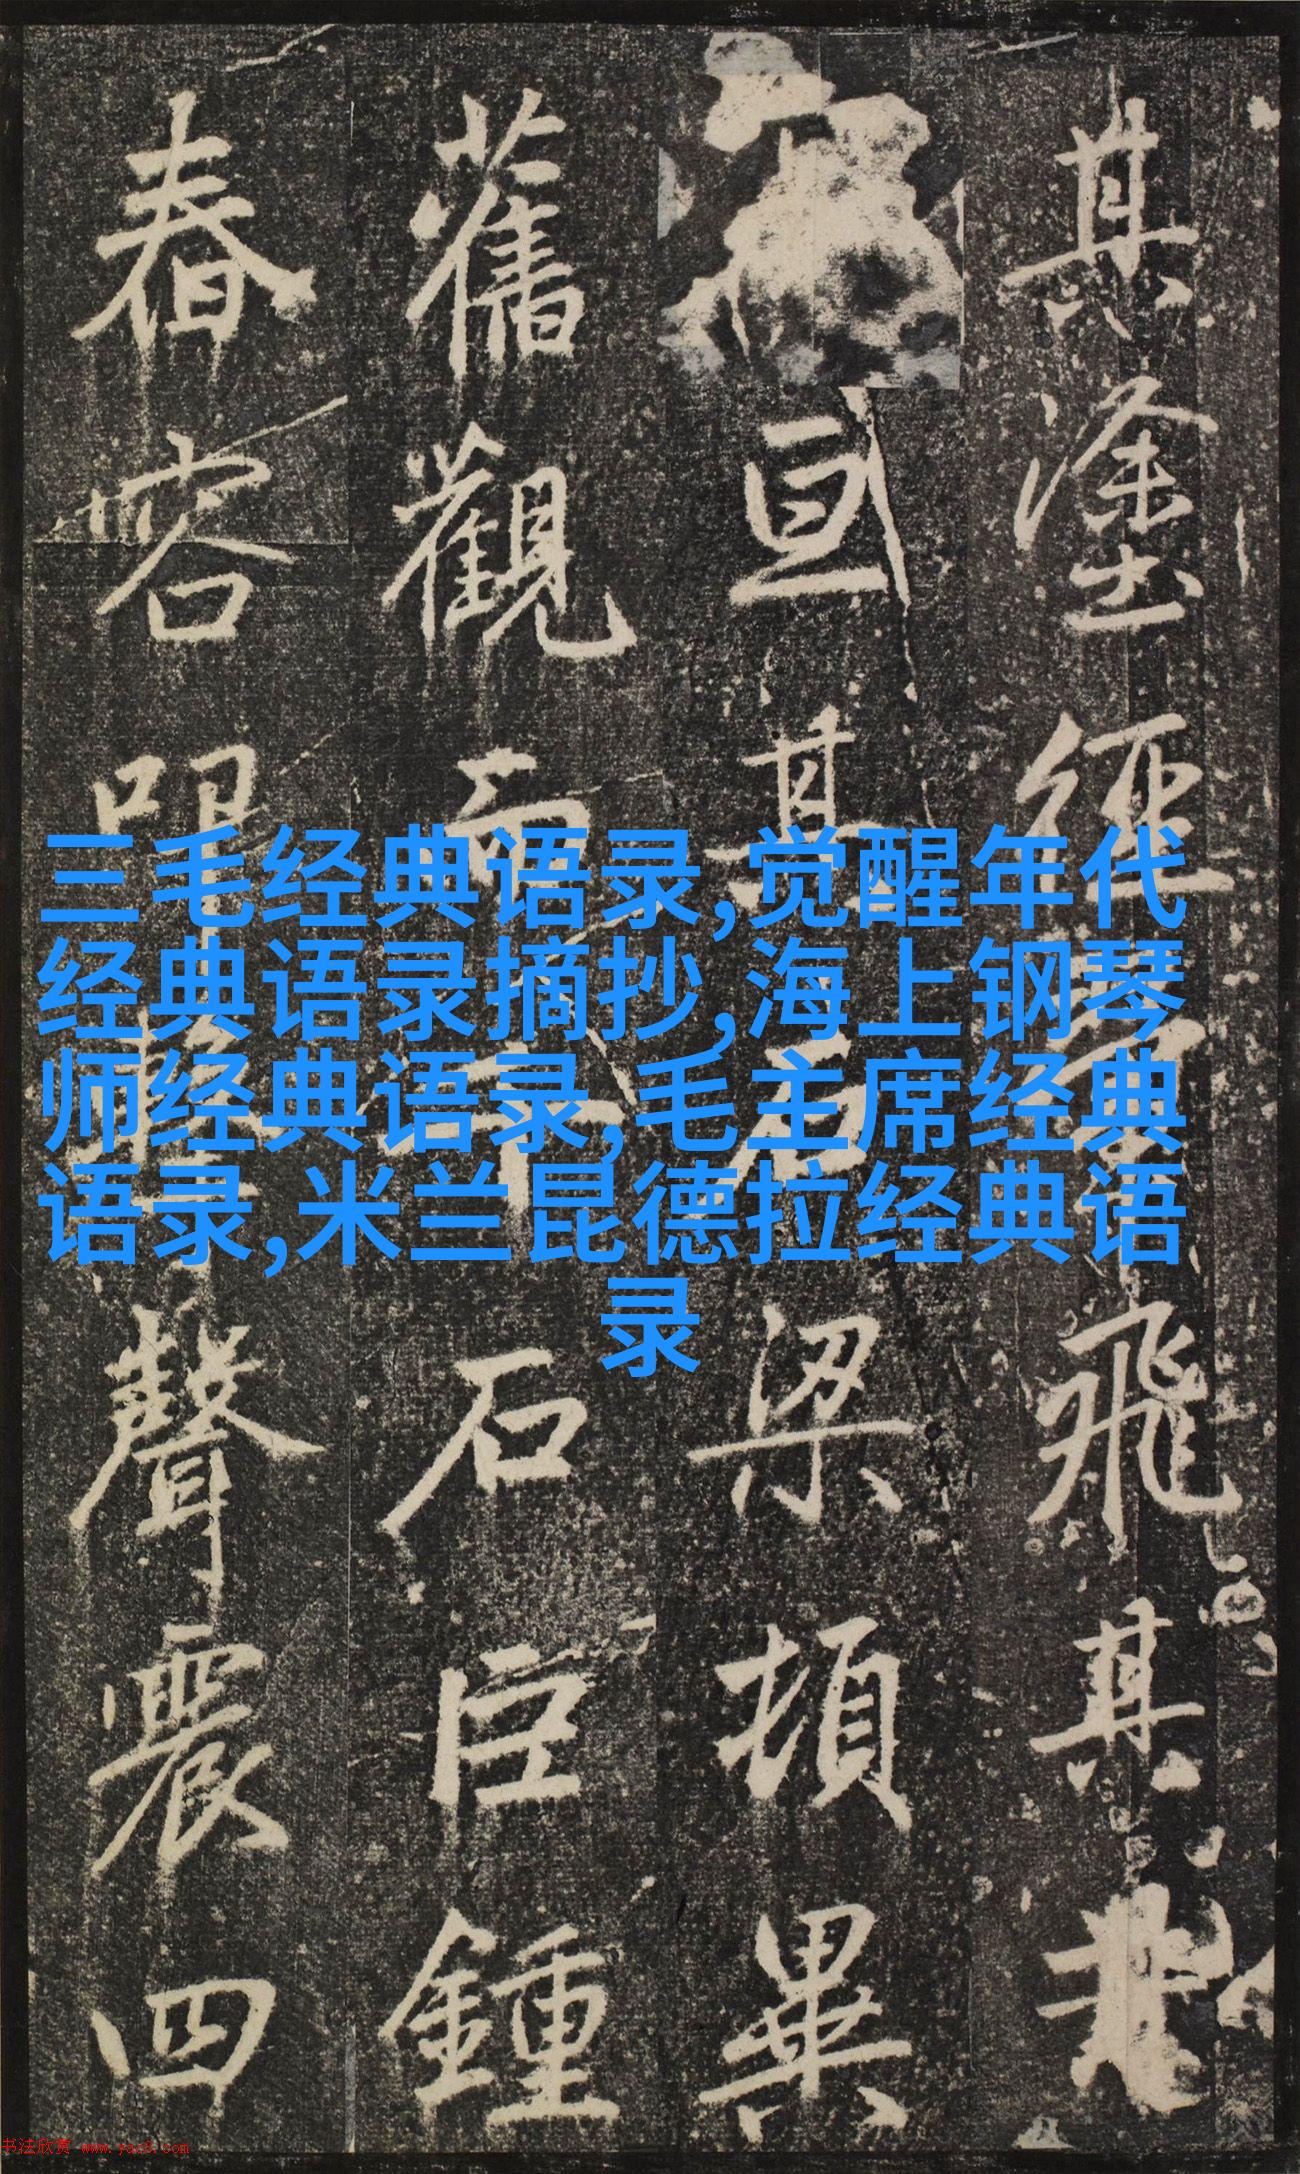 三毛经典语录,觉醒年代
经典语录摘抄,海上钢琴
师经典语录,毛主席经典
语录,米兰昆德拉经典语
录
其塗經飛其
亘其石梁頓異
舊觀而千石巨鍾
春容聲震四
书法欣赏 www.yac8.com